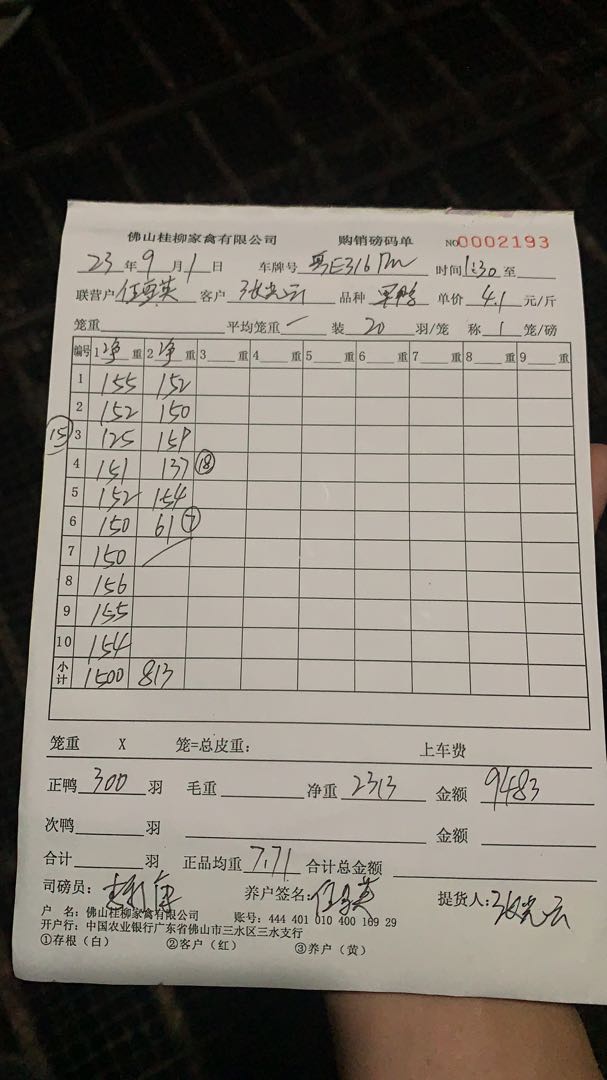 佛山桂柳家禽有限公司 购销磅码单 NO 0002193
23年9月1日 车牌号 粤E316 时间1:30至
联营户 英 客户 张光云 品种 单价 4.1 元/斤
笼重 平均笼重 装 20 羽/笼 称 1 笼/磅
编号 1净重 2净重 3重 4重 5重 6重 7重 8重 9重
1 155 152
2 152 150
⑮ 3 125 159
4 151 137 ⑱
5 152 154
6 150 61 ⑦
7 150
8 156
9 155
10 154
小计 1500 813
笼重 X 笼=总皮重: 上车费
正鸭 300 羽 毛重 净重 2313 金额 9483
次鸭 羽 金额
合计 羽 正品均重 7.71 合计总金额
司磅员: 养户签名: 英 提货人: 张光云
户 名: 佛山桂柳家禽有限公司 账号: 444 401 010 400 169 29
开户行: 中国农业银行广东省佛山市三水区三水支行
①存根（白） ②客户（红） ③养户（黄）